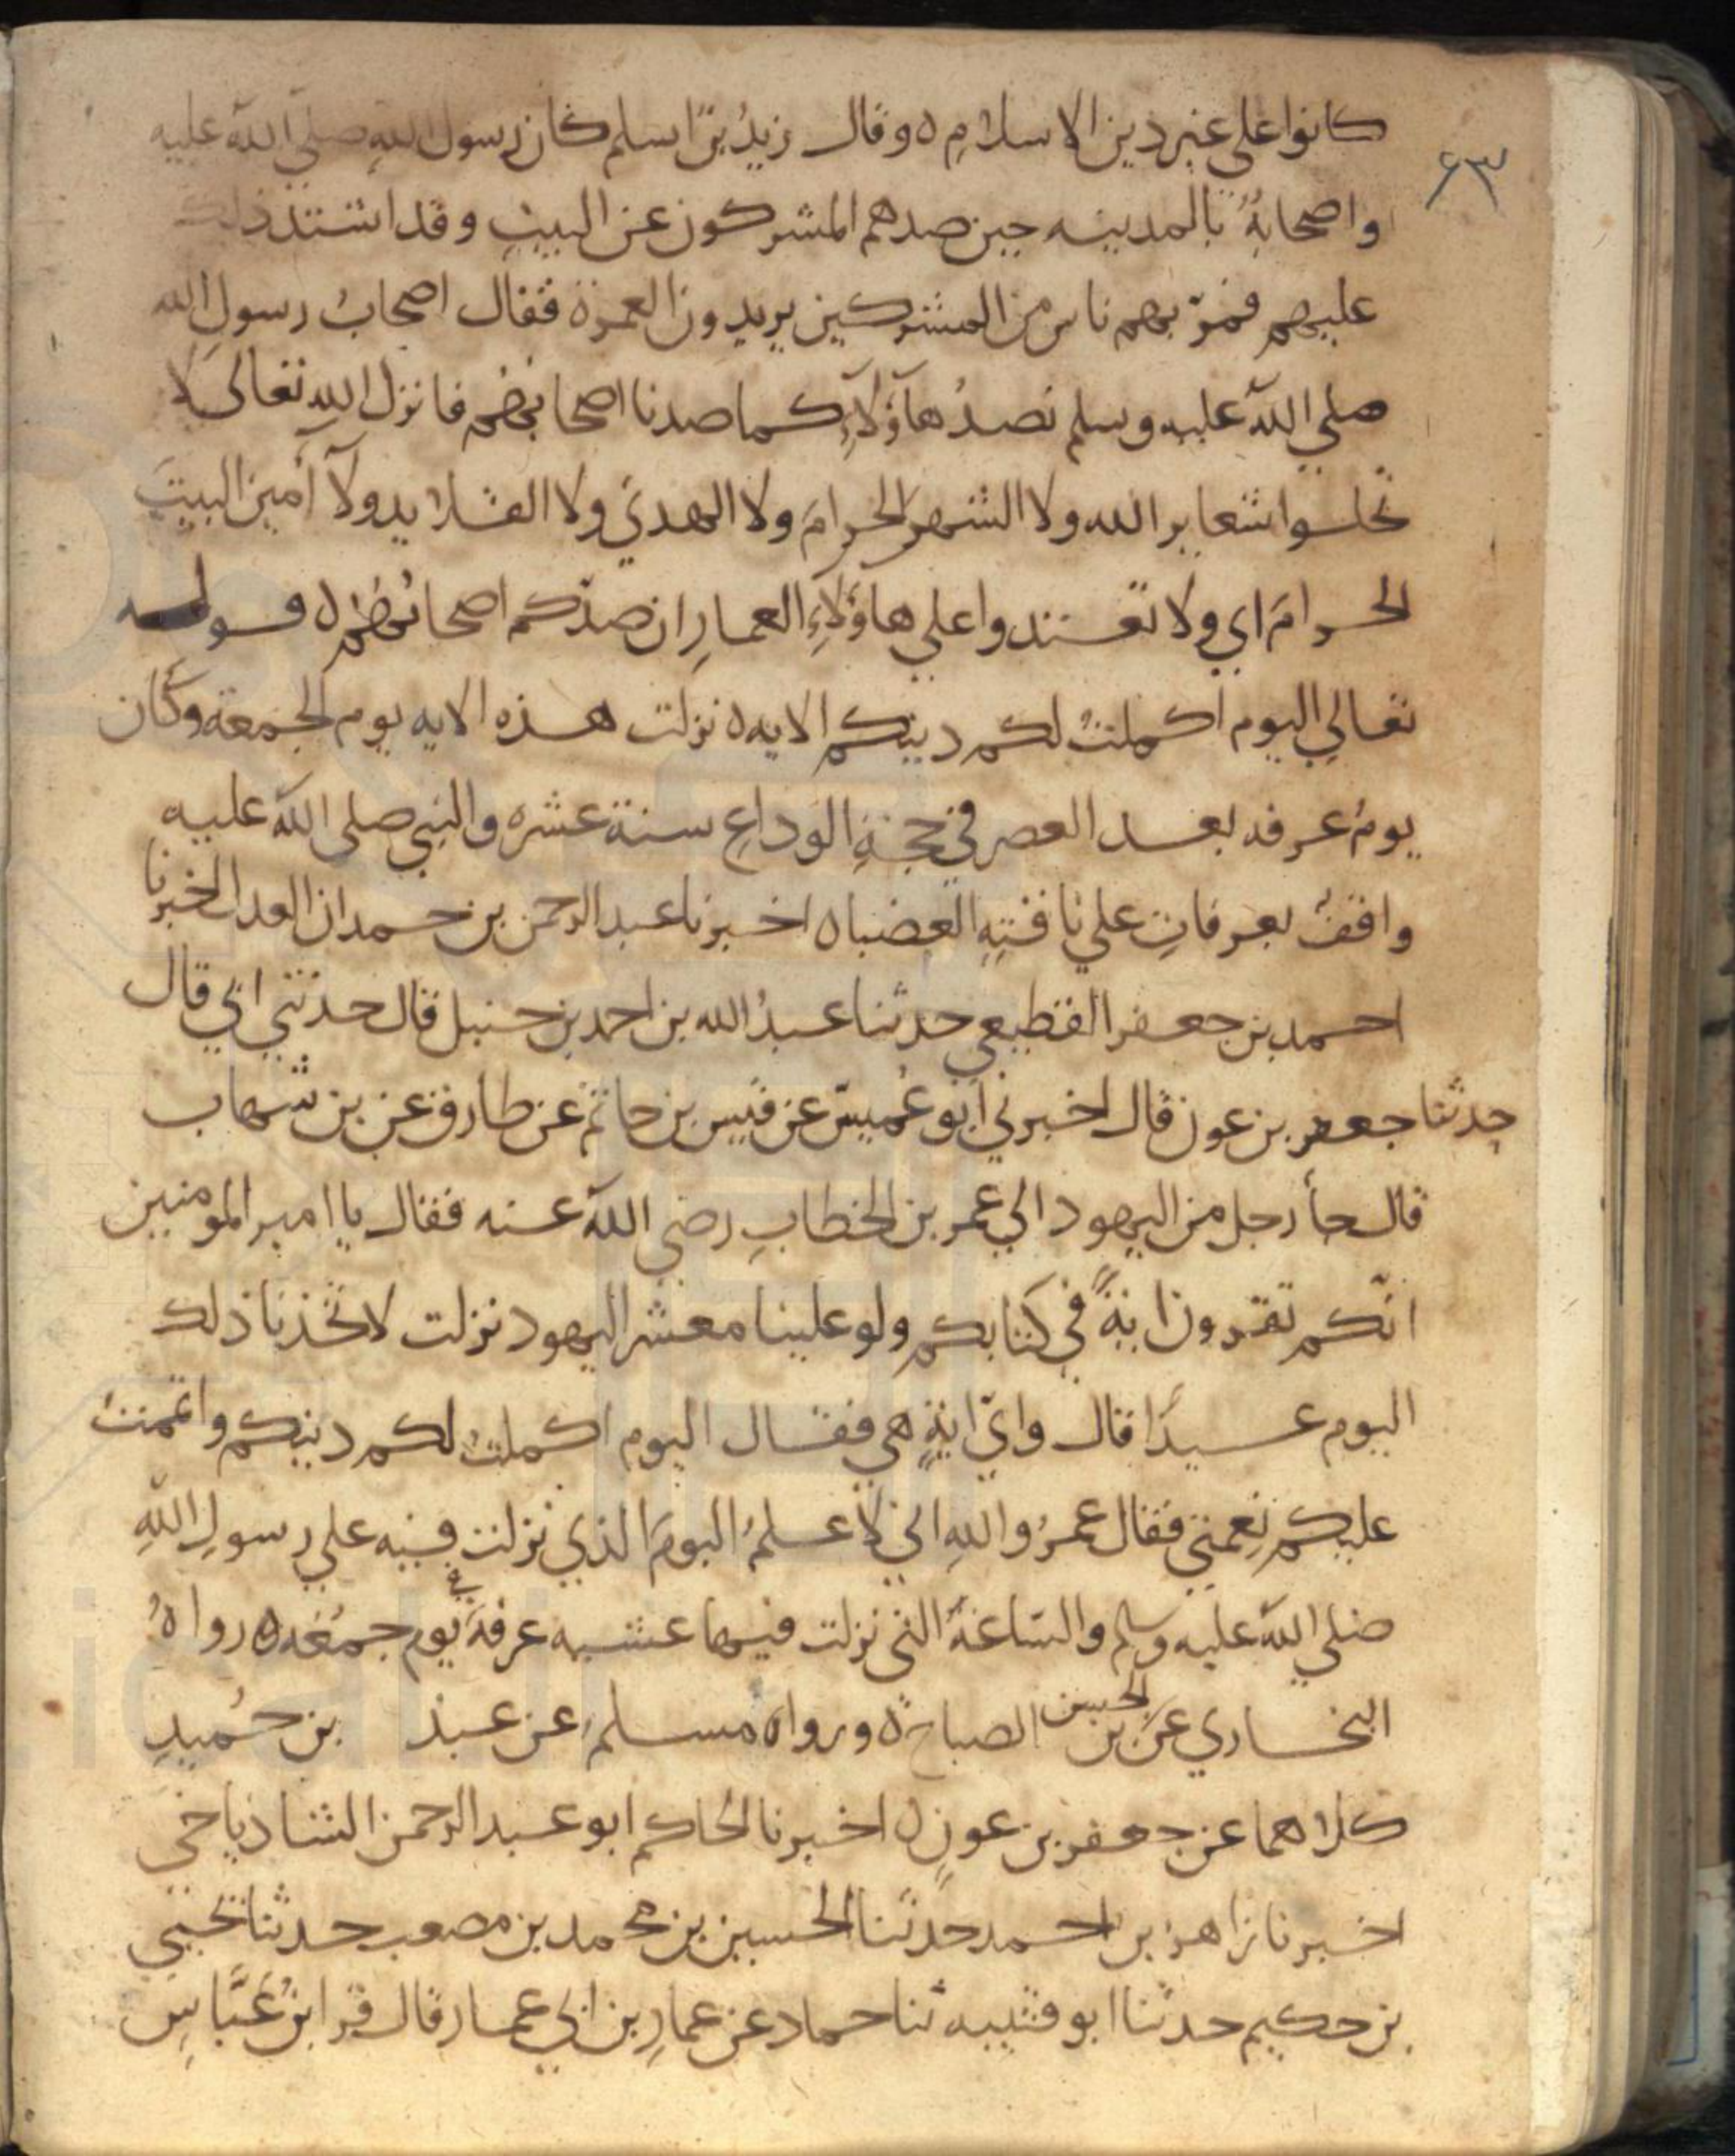 ٦٣
كانوا على غير دين الاسلام ٥ وقال زيد بن اسلم كان رسول الله صلى الله عليه
واصحابه بالمدينه حين صدهم المشركون عن البيت وقد اشتد ذلك
عليهم فمرّ بهم ناس من المشركين يريدون العمرة فقال اصحاب رسول الله
صلي الله عليه وسلم نصدُ هآؤلآءِ كما صدنا اصحابهم فانزل الله تعالى لا
تحلوا شعاير الله ولا الشهر الحرام ولا الهدي ولا القلايد ولآ آمين البيت
الحرام اي ولا تعتدوا علي هاؤلاءِ العمارِ ان صدّكم اصحابهم ٥ قوله
تعالي اليوم اكملتُ لكم دينكم الايه ٥ نزلت هذه الايه يوم الجمعة وكان
يوم عرفه بعد العصر في حجةِ الوداعِ سنة عشره والنبي صلى الله عليه
واقفٌ بعرفاتٍ علي ناقتِهِ العضباه اخبرنا عبد الرحمن بن حمدان العدل اخبرنا
احمد بن جعفر القطيعي حدثنا عبدُ الله بن احمد بن حنبل قال حدثني ابي قال
حدثنا جعفر بن عون قال اخبرني ابو عُميس عن قيس بن حاتم عن طارق عن بن شهاب
قال جأ رجل من اليهود الي عمر بن الخطابِ رضي الله عنه فقال يا امير المومنين
انّكم تقرون ايةً في كتابكم ولو علينا معشر اليهود نزلت لاتخذنا ذلك
اليوم عيدًا قال وايّ ايةٍ هي فقال اليوم اكملتُ لكم دينكم واتممتُ
عليكم نِعمتي فقال عمرُ واللهِ اني لاعلمُ اليومَ الذي نزلت فيه علي رسولِ اللهِ
صلي الله عليه وسلم والسّاعةَ التي نزلت فيها عشيه عرفةَ في يوم جمُعَه ٥ رواهُ
البخاري عن الحسن بن الصباح ٥ ورواه مسلم عن عبد بن حُميدٍ
كلاهما عن جعفر بن عونٍ ٥ اخبرنا الحاكم ابو عبد الرحمن الشاذياخي
اخبرنا زاهر بن احمد حدثنا الحسين بن محمد بن مصعب حدثنا يحيي
بن حكيم حدثنا ابو قتيبه ثنا حماد عن عمارِ بن ابي عمار قال قرا ابنُ عَبَّاسٍ